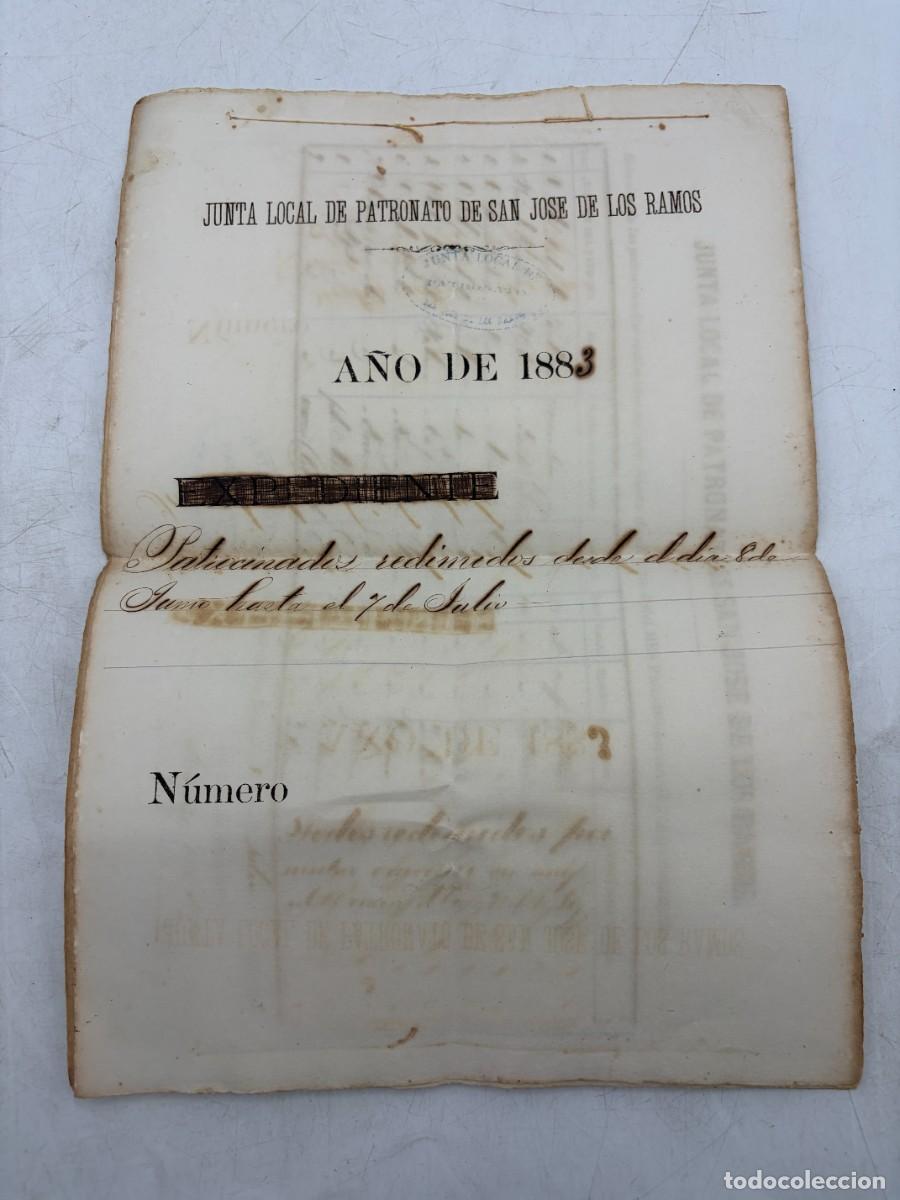 JUNTA LOCAL DE PATRONATO DE SAN JOSE DE LOS RAMOS
JUNTA LOCAL DE
AÑO DE 1883
EXPEDIENTE
Patrocinados redimedos desde el dia 8 de
Junio hasta el 7 de Julio
Número
todocoleccion